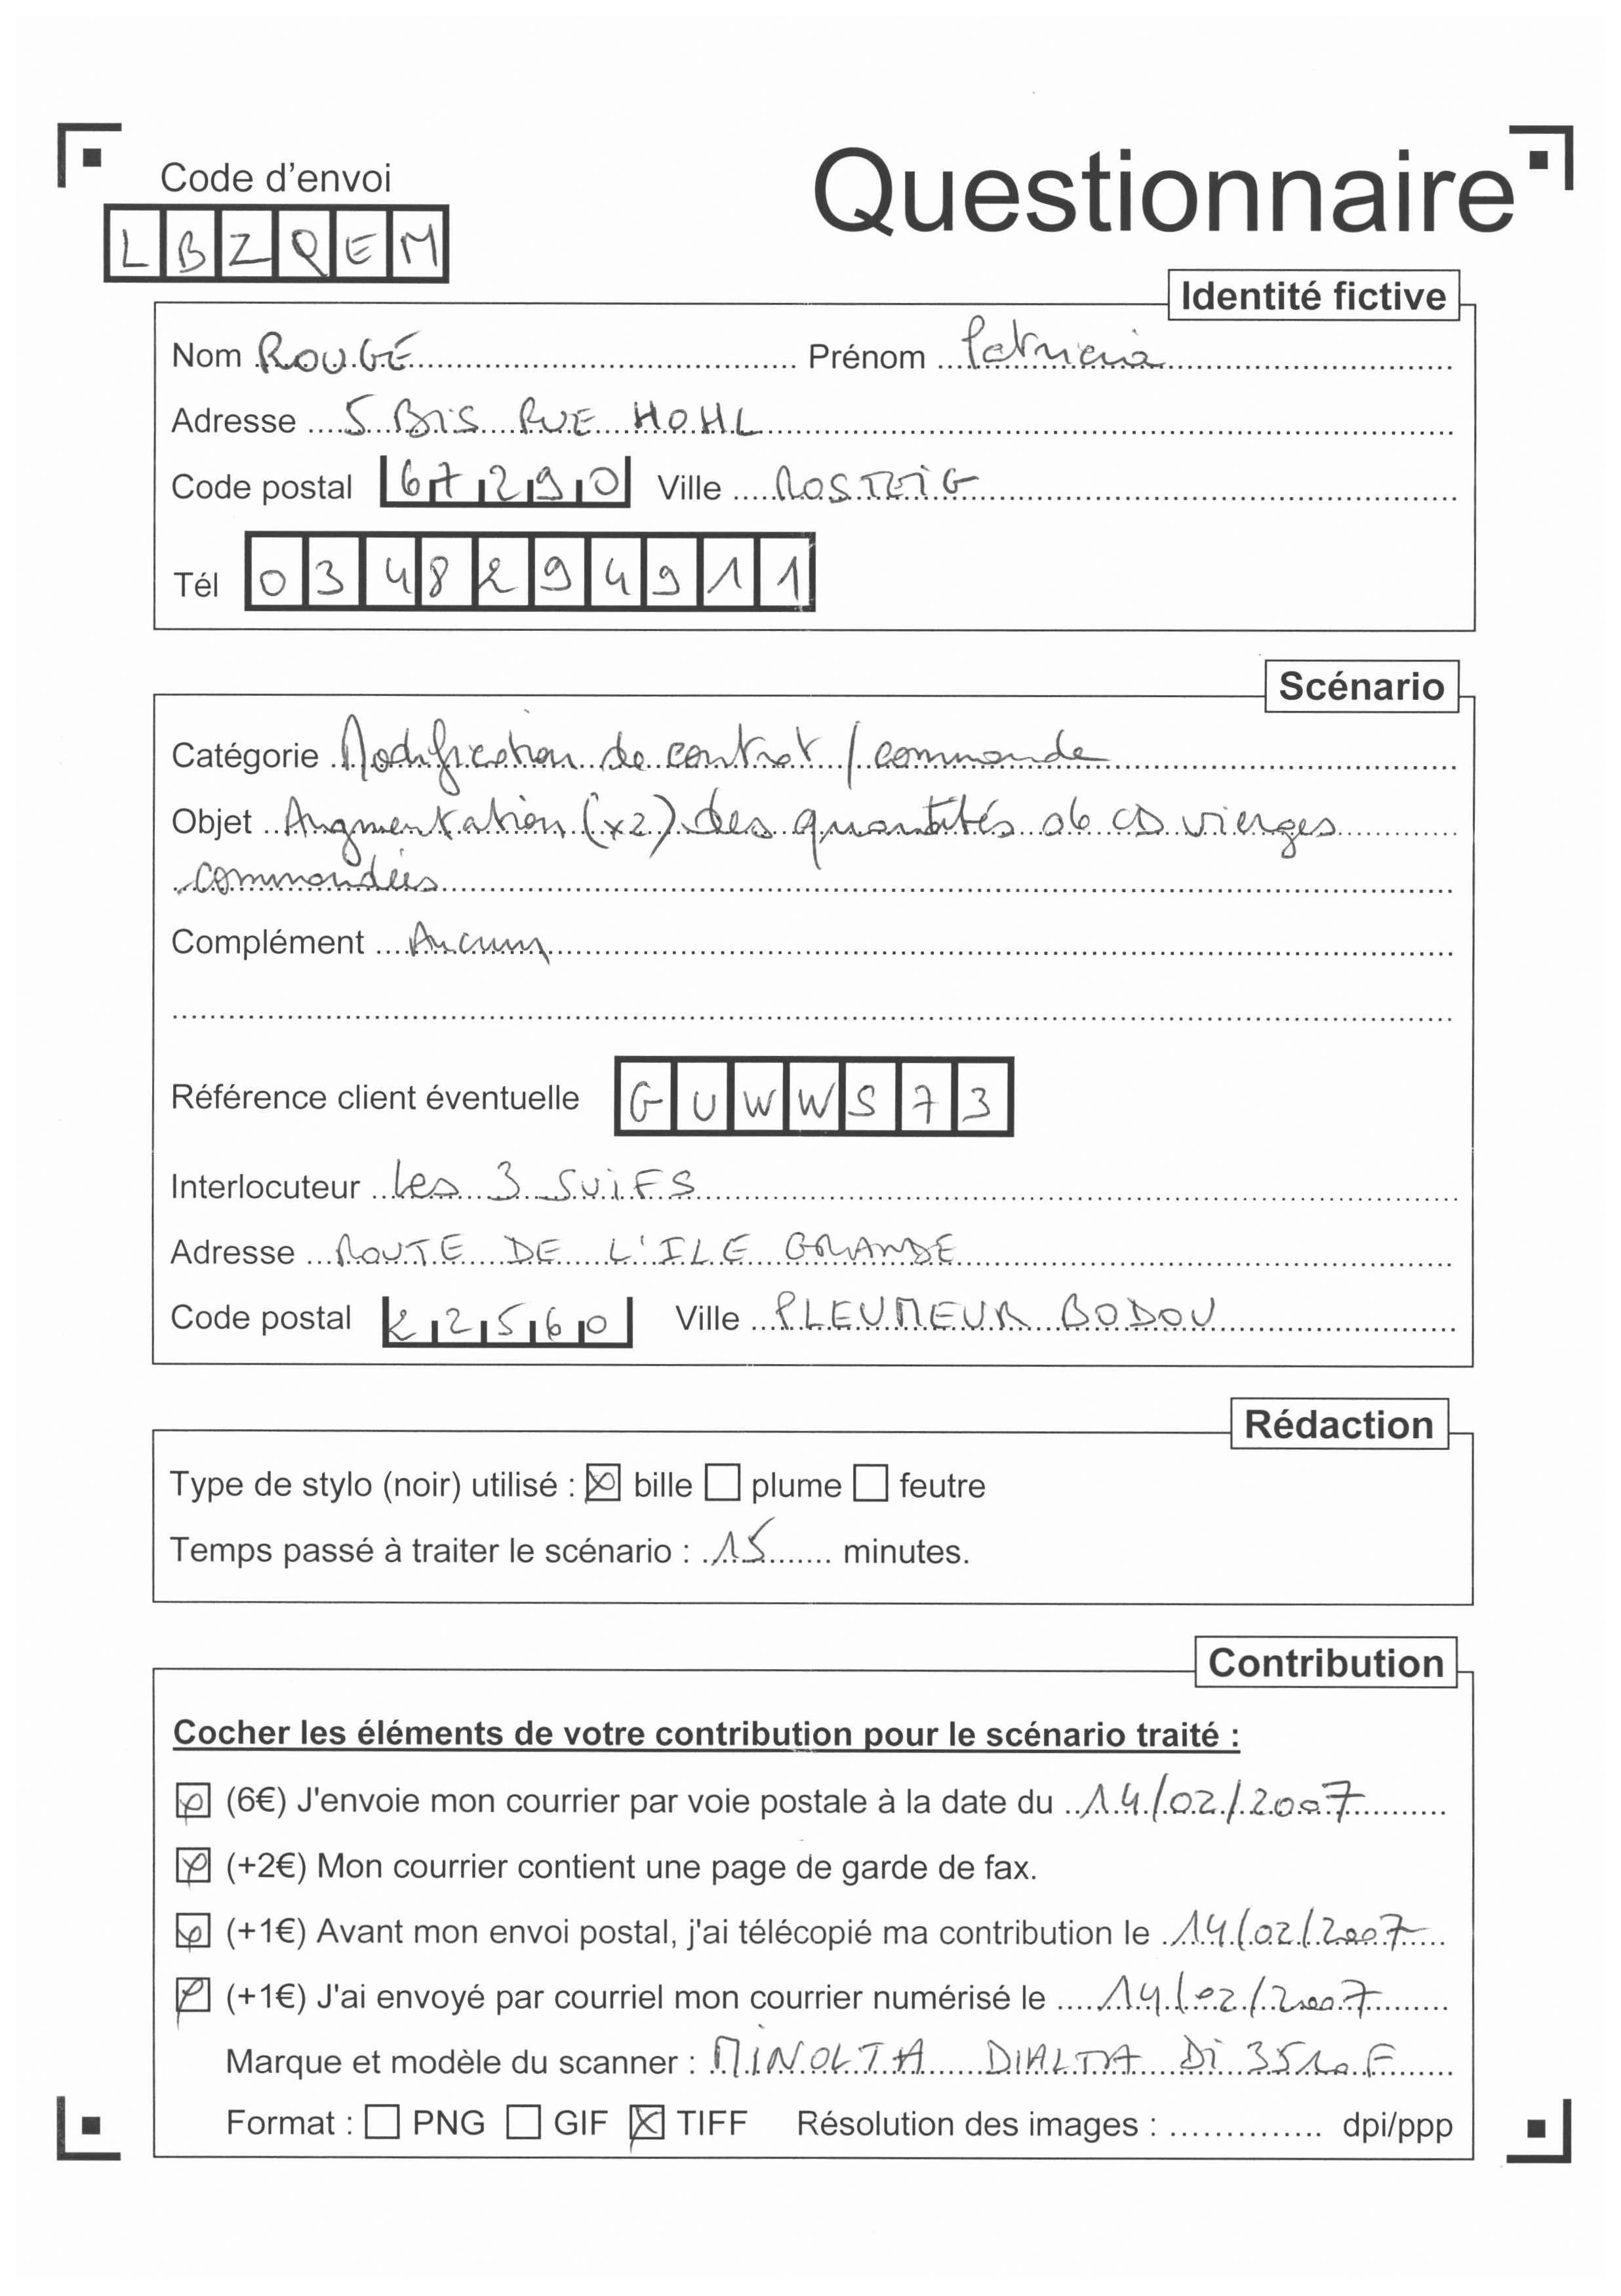 Code d'envoi
Questionnaire
LBZQEM
Identité fictive
Nom ROUGÉ Prénom Patricia
Adresse 5 BIS RUE HOHL
Code postal 67290 Ville ROSTEIG
Tél 0348294911
Scénario
Catégorie Modification de contrat / commande
Objet Augmentation (x2) des quantités de CD vierges
commandées
Complément Aucun
Référence client éventuelle GUWWS73
Interlocuteur Les 3 SUiFS
Adresse ROUTE DE L'ILE GRANDE
Code postal 22560 Ville PLEUMEUR BODOU
Rédaction
Type de stylo (noir) utilisé : bille plume feutre
Temps passé à traiter le scénario : 15 minutes.
Contribution
Cocher les éléments de votre contribution pour le scénario traité :
(6€) J'envoie mon courrier par voie postale à la date du 14/02/2007
(+2€) Mon courrier contient une page de garde de fax.
(+1€) Avant mon envoi postal, j'ai télécopié ma contribution le 14/02/2007
(+1€) J'ai envoyé par courriel mon courrier numérisé le 14/02/2007
Marque et modèle du scanner : MINOLTA DIALTA Di 3510 F
Format : PNG GIF TIFF Résolution des images : dpi/ppp